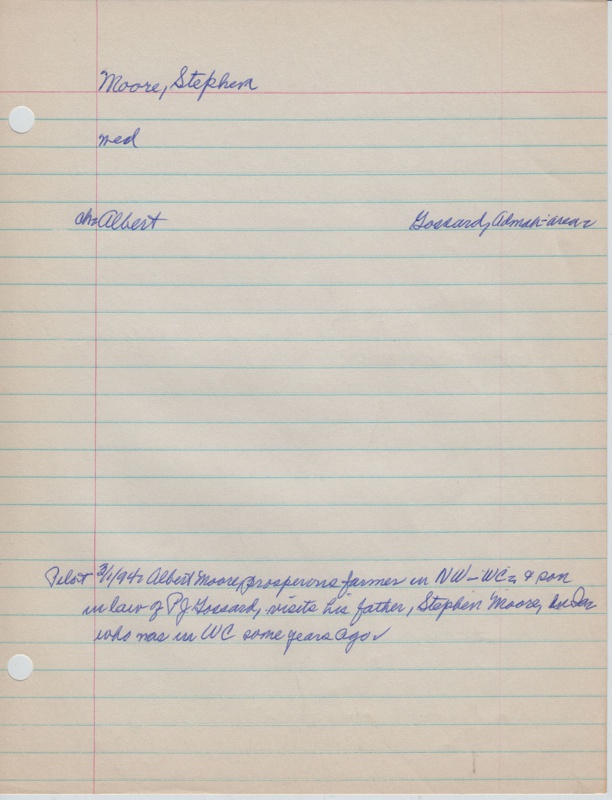 Moore, Stephen
med
ch= Albert Gossard, Admah-area=
Pilot 3/1/94= Albert Moore, prosperous farmer in NW-WC= & son
in law of PJ Gossard, visits his father, Stephen Moore, in
who was in WC some years ago